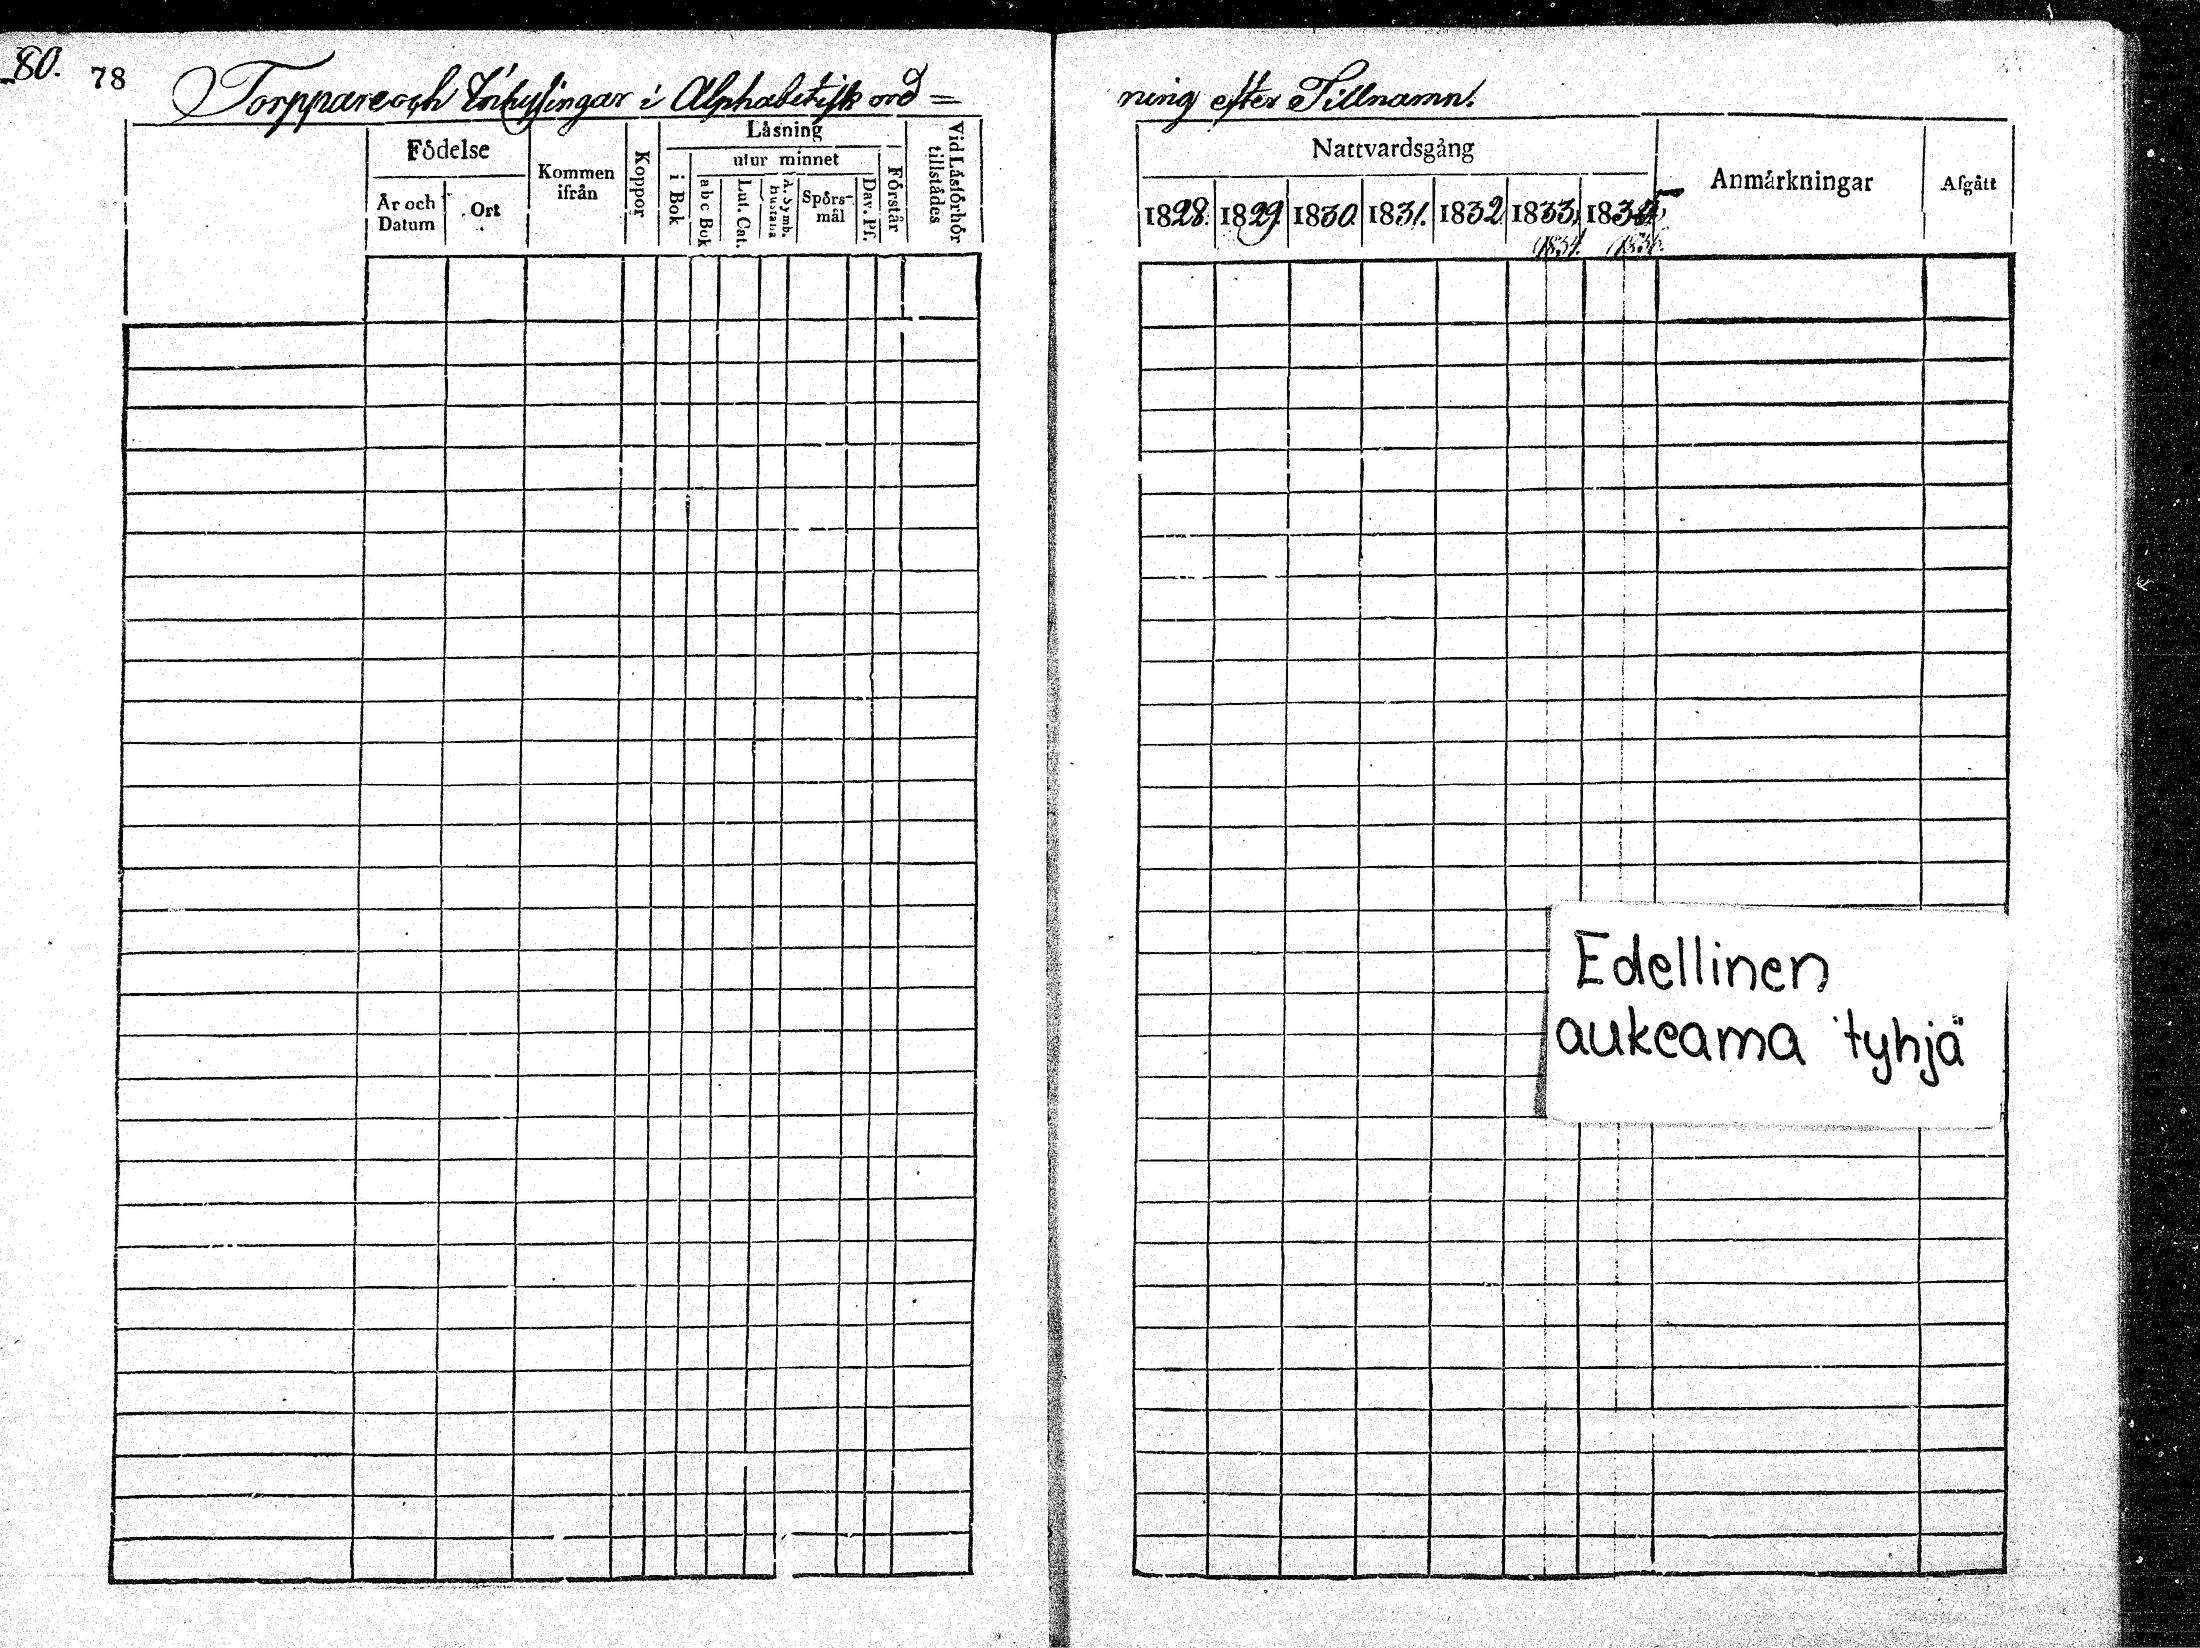 80.
78
Torppare och Inhysingar i Alphabetisk ord=
Födelse
År och Datum
Ort
Kommen ifrån
Koppor
Läsning
i Bok
utur minnet
abc Bok
Lut. Cat.
A. Symb. hustafla
Spörs-mål
Dav. Ps.
Förstår
Vid Läsförhör tillstådes
ning efter Tillnamn.
Nattvardsgång
1828. 1829. 1830. 1831. 1832. 1833.
Anmärkningar
Afgått
Edellinen
aukeama tyhjä